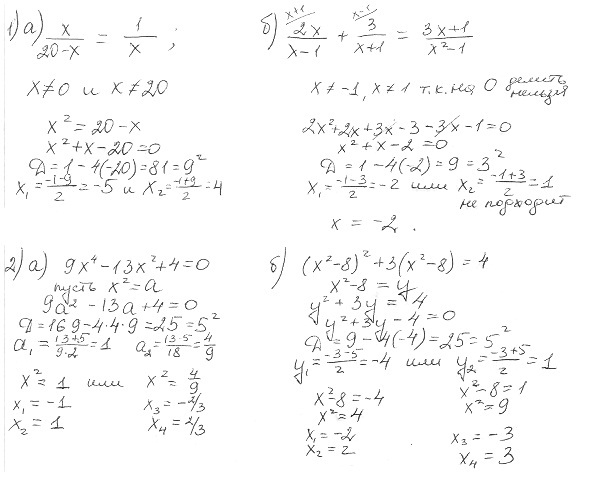 1) а) x/(20-x) = 1/x ;
x≠0 и x≠20
x² = 20-x
x²+x-20=0
Д=1-4(-20)=81=9²
x₁=(-1-9)/2=-5 и x₂=(-1+9)/2=4
б) 2x/(x-1) (x+1 + 3/(x+1) (x-1 = (3x+1)/(x²-1)
x≠-1, x≠1 т.к. на 0 делить нельзя
2x²+2x+3x-3-3x-1=0
x²+x-2=0
Д=1-4(-2)=9=3²
x₁=(-1-3)/2=-2 или x₂=(-1+3)/2=1
не подходит
x = -2 .
2) а) 9x⁴-13x²+4=0
пусть x²=a
9a²-13a+4=0
Д=169-4·4·9=25=5²
a₁=(13+5)/(9·2)=1 a₂=(13-5)/18=4/9
x²=1 или x²=4/9
x₁=-1 x₃=-2/3
x₂=1 x₄=2/3
б) (x²-8)²+3(x²-8)=4
x²-8=y
y²+3y=4
y²+3y-4=0
Д=9-4(-4)=25=5²
y₁=(-3-5)/2=-4 или y₂=(-3+5)/2=1
x²-8=-4 x²-8=1
x²=4 x²=9
x₁=-2 x₃=-3
x₂=2 x₄=3